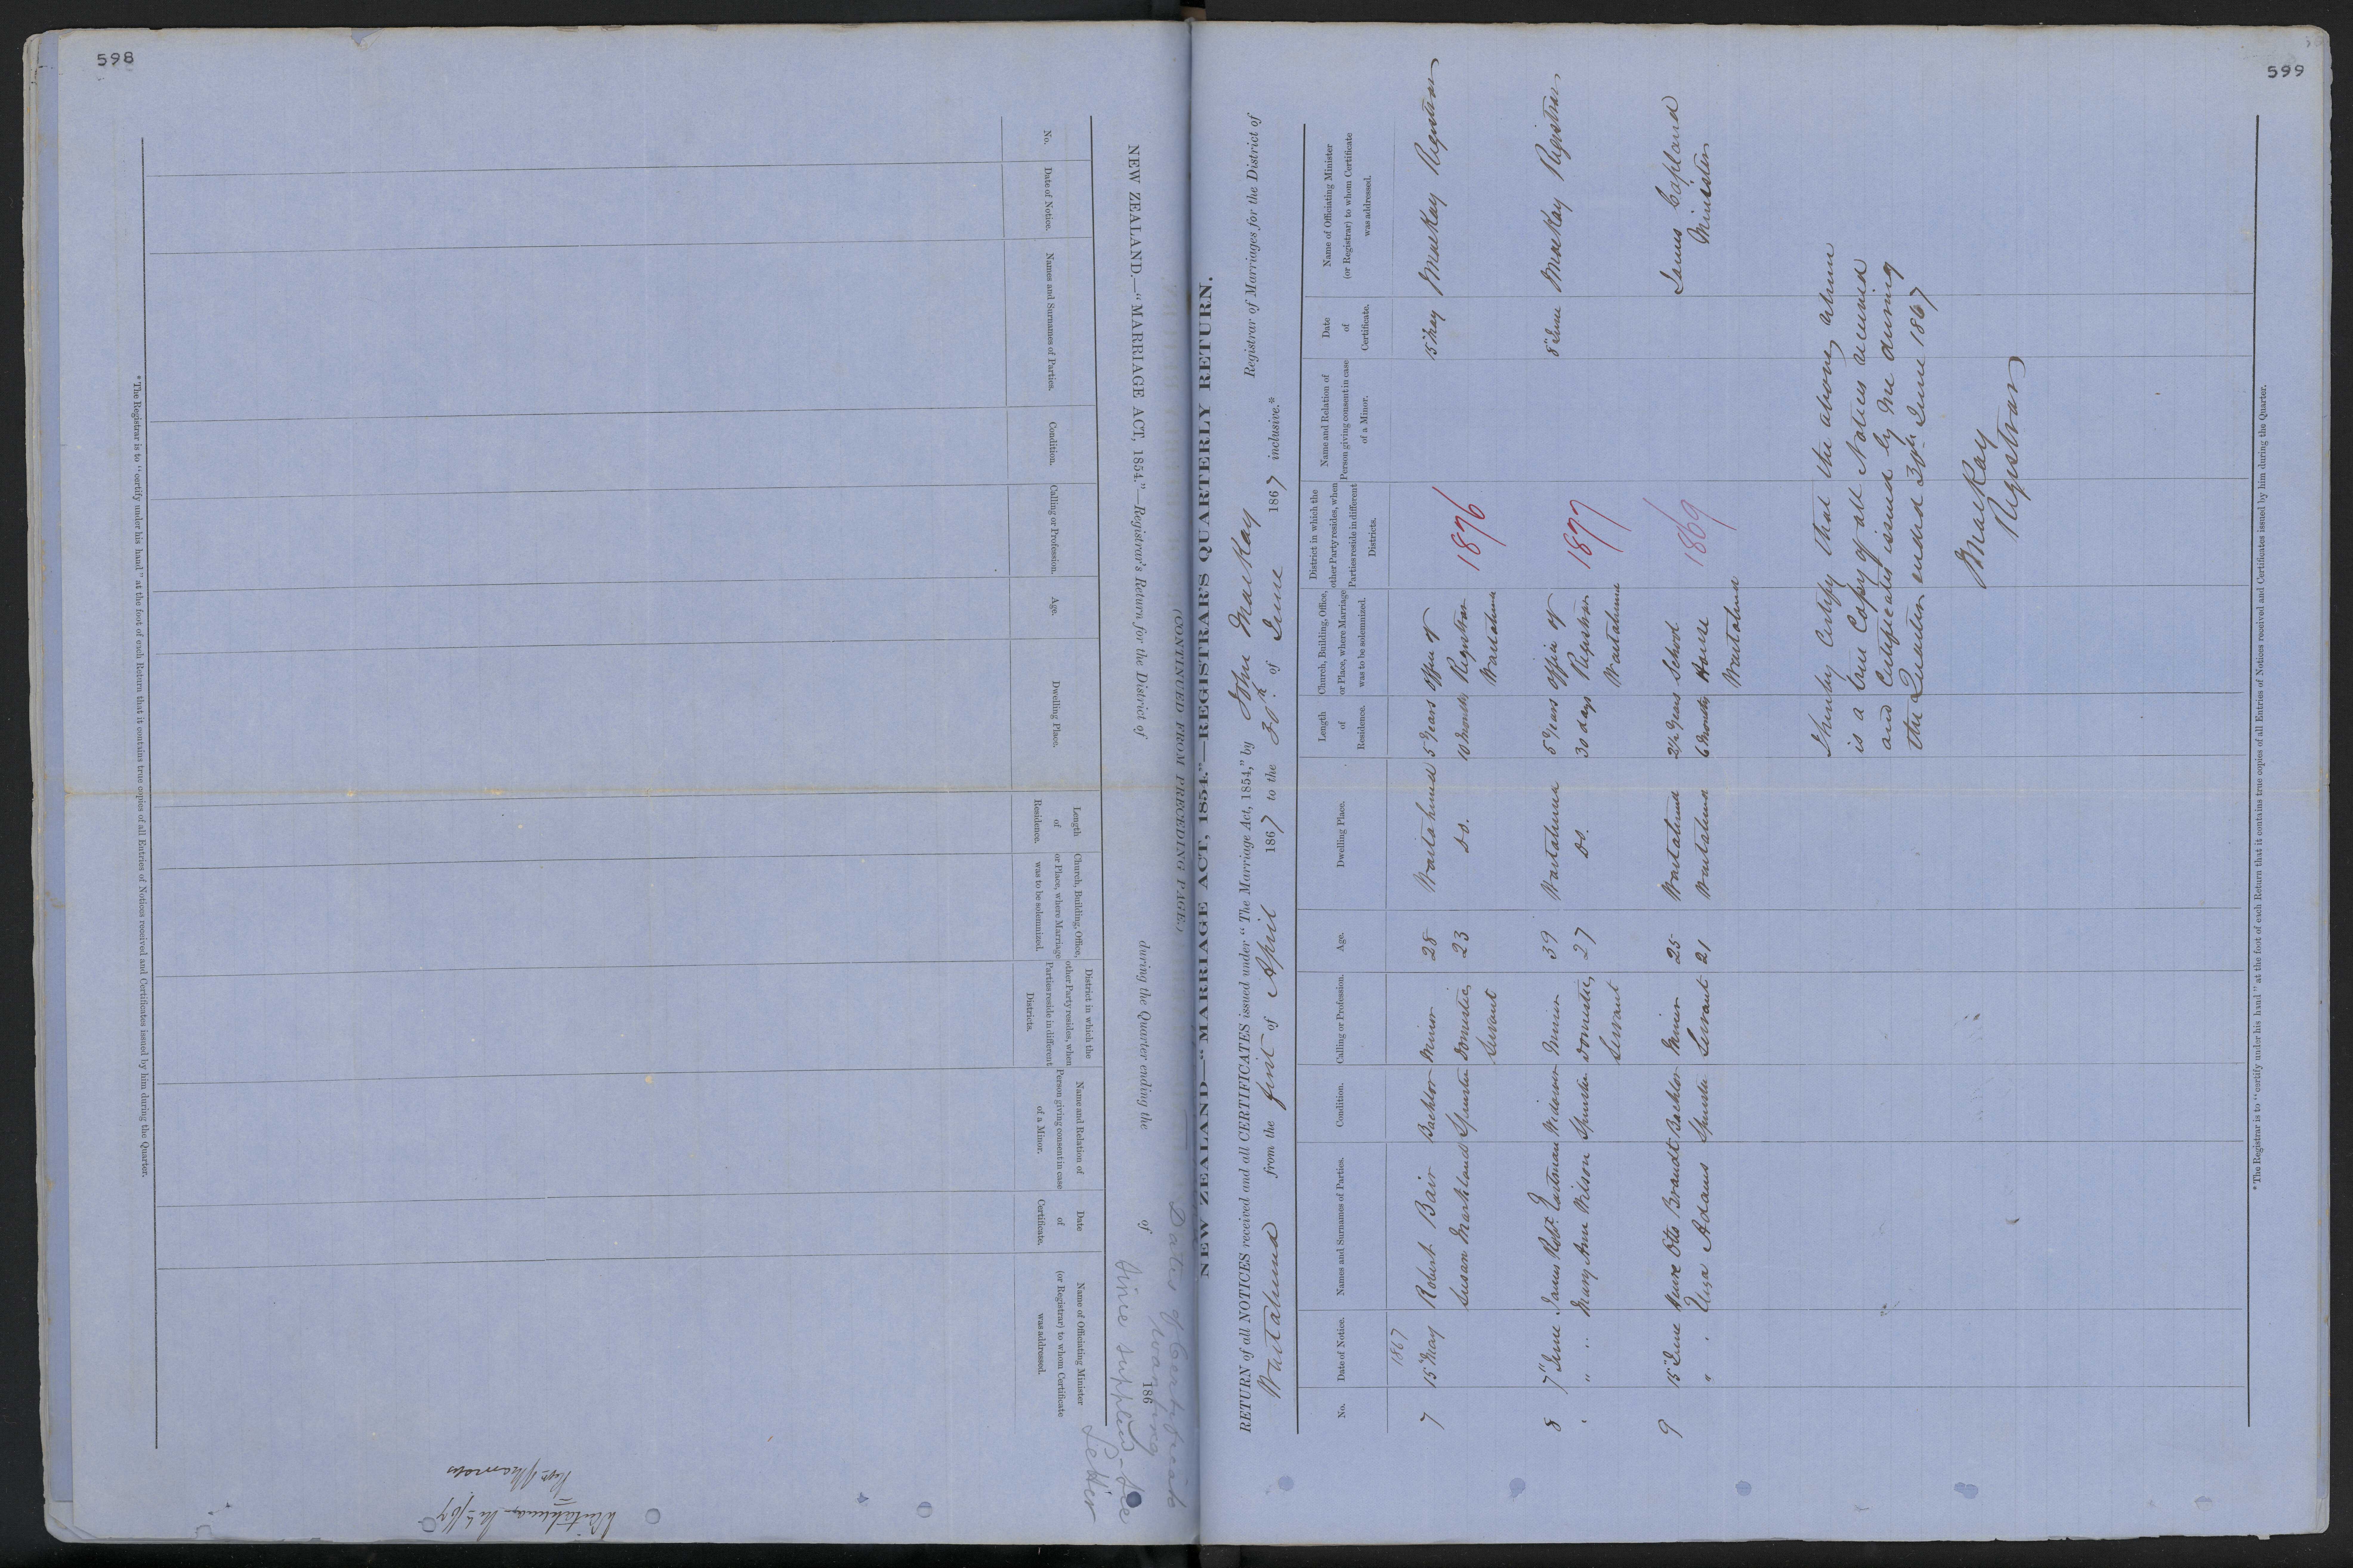 598
NEW ZEALAND.—"MARRIAGE ACT, 1854."—Registrar's Return for the District of during the Quarter ending the of 186
No.
Date of Notice.
Names and Surnames of Parties.
Condition.
Calling or Profession.
Age.
Dwelling Place.
Length
of
Residence.
Church, Building, Office,
or Place, where Marriage
was to be solemnized.
District in which the
other Party resides, when
Parties reside in different
Districts.
Name and Relation of
Person giving consent in case
of a Minor.
Date
of
Certificate.
Name of Officiating Minister
(or Registrar) to whom Certificate
was addressed.
*The Registrar is to "certify under his hand" at the foot of each Return that it contains true copies of all Entries of Notices received and Certificates issued by him during the Quarter.
(CONTINUED FROM PRECEDING PAGE.)
Dates of Certificate
wanting
since supplied - See
Letter
599
NEW ZEALAND—"MARRIAGE ACT, 1854."—REGISTRAR'S QUARTERLY RETURN.
RETURN of all NOTICES received and all CERTIFICATES issued under "The Marriage Act, 1854," by John MacKay Registrar of Marriages for the District of
Waitahuna from the first of April 1867 to the 30th of June 1867 inclusive.*
No.
Date of Notice.
Names and Surnames of Parties.
Condition.
Calling or Profession.
Age.
Dwelling Place.
Length
of
Residence.
Church, Building, Office,
or Place, where Marriage
was to be solemnized.
District in which the
other Party resides, when
Parties reside in different
Districts.
Name and Relation of
Person giving consent in case
of a Minor.
Date
of
Certificate.
Name of Officiating Minister
(or Registrar) to whom Certificate
was addressed.
1867
7 15" May Robert Bair Bachlor Miner 28 Waitahuna 5 Years Office of 15" May J MacKay Registrar
Susan Markland Spinster Domestic 23 Do. 10 Months Registrar 1876
Servant Waitahuna
8 7" June James Robt. Eastman Widower Miner 39 Waitahuna 5 Years Office of 8" June J MacKay Registrar
" " Mary Ann Wilson Spinster Domestic 27 Do. 30 days Registrar 1877
Servant Waitahuna
9 15" June Otto Brandt Bachlor Miner 25 Waitahuna 2½ Years School James Copland
" " Eliza Adams Spinster Servant 21 Waitahuna 6 Months House 1869 Minister
Waitahuna
I hereby Certify that the above return
is a true Copy of all Notices received
and Certificates issued by me during
the Quarter ended 30th June 1867
J MacKay
Registrar
*The Registrar is to "certify under his hand" at the foot of each Return that it contains true copies of all Entries of Notices received and Certificates issued by him during the Quarter.